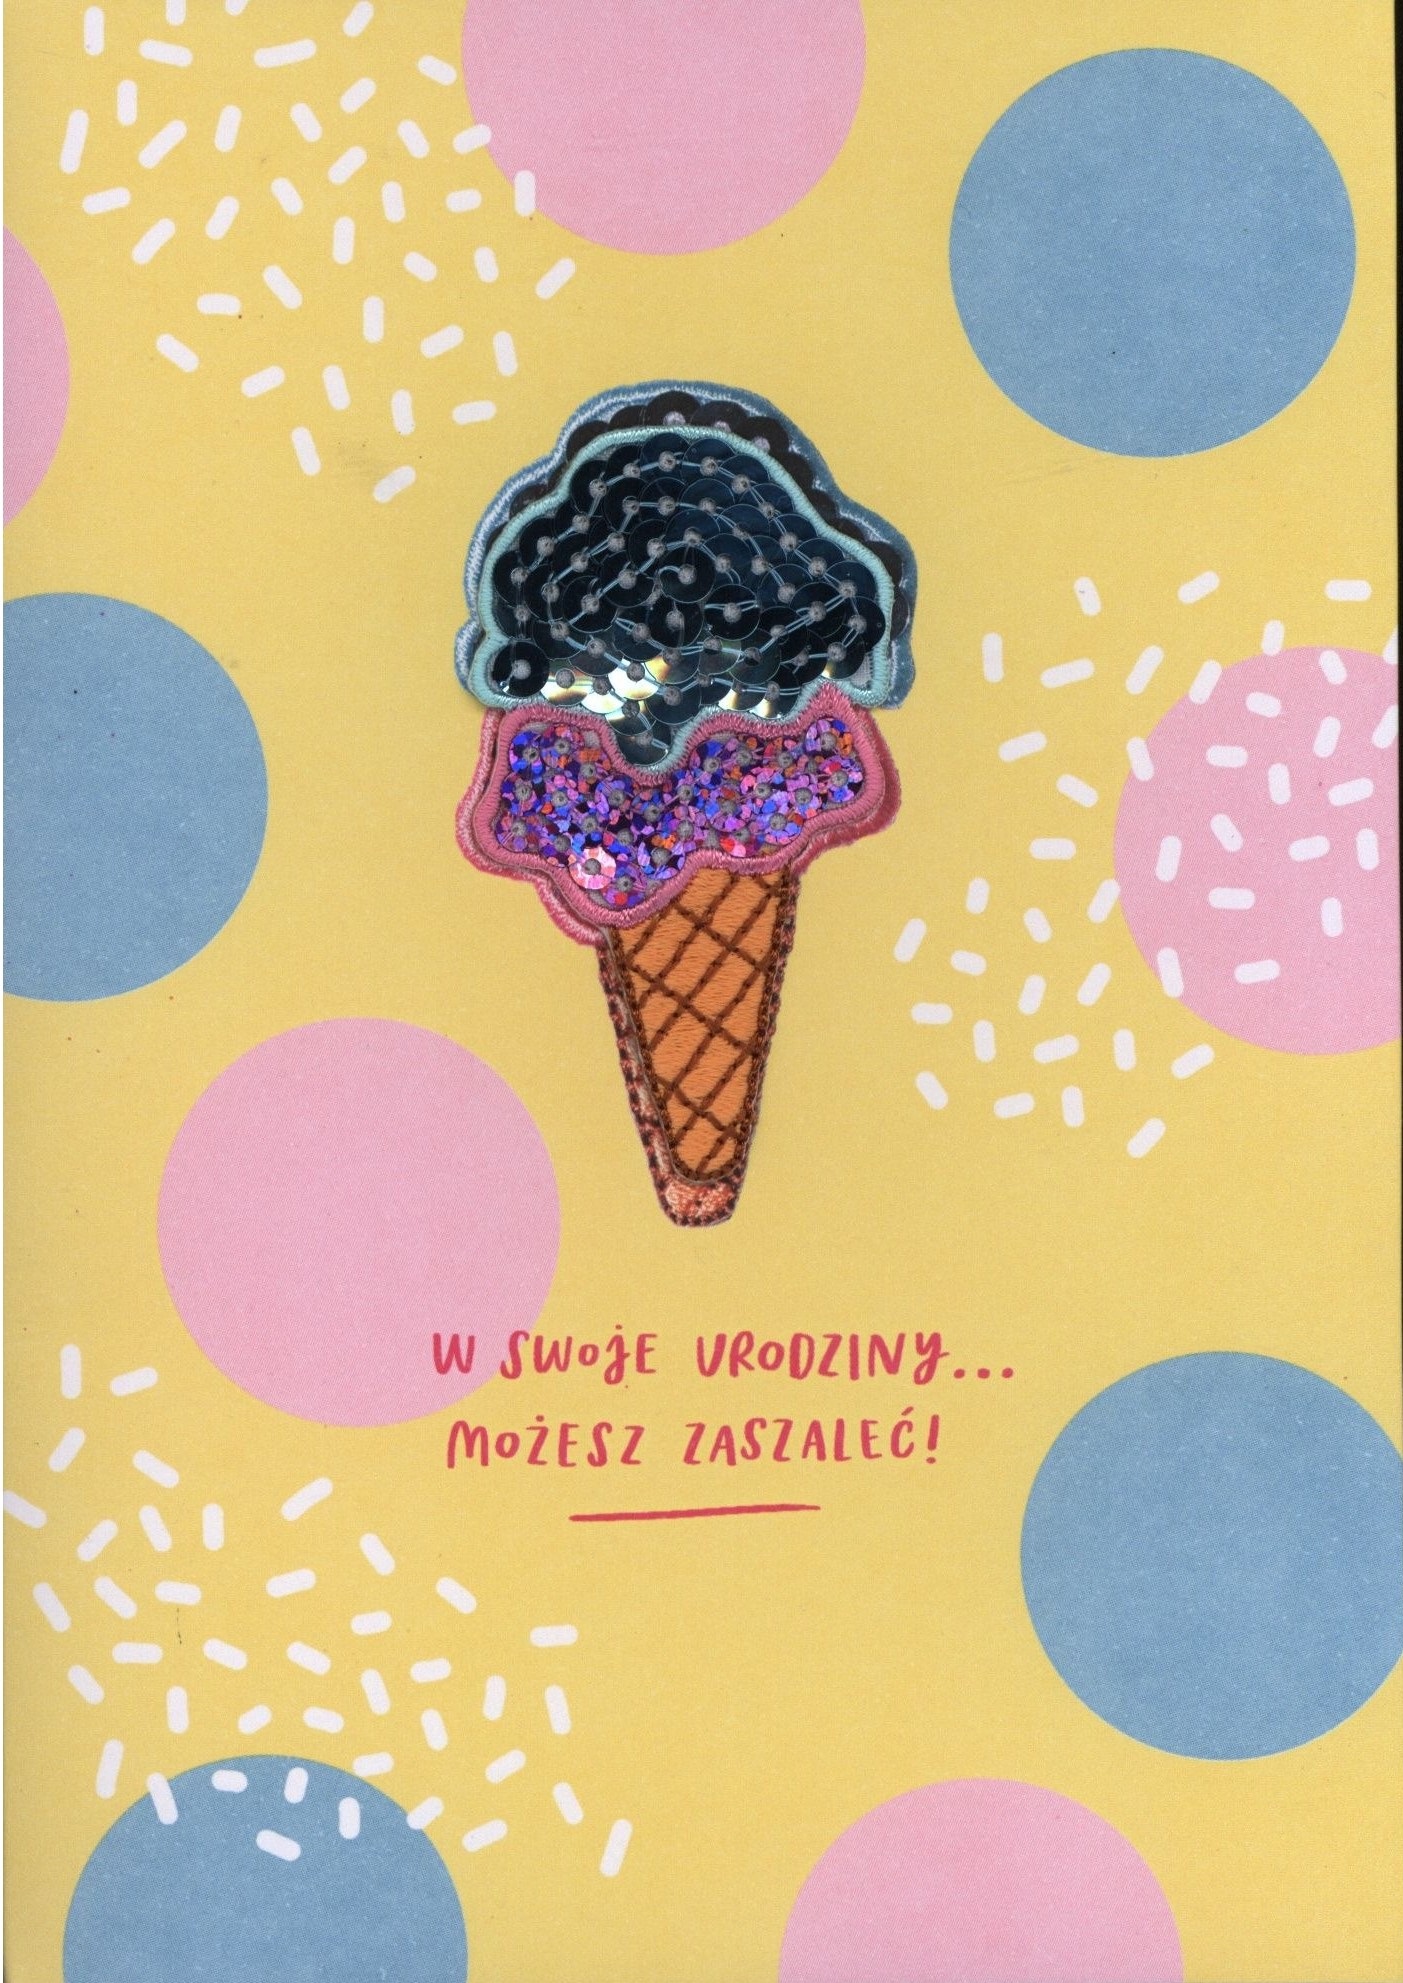 W SWOJE URODZINY...
MOŻESZ ZASZALEĆ!